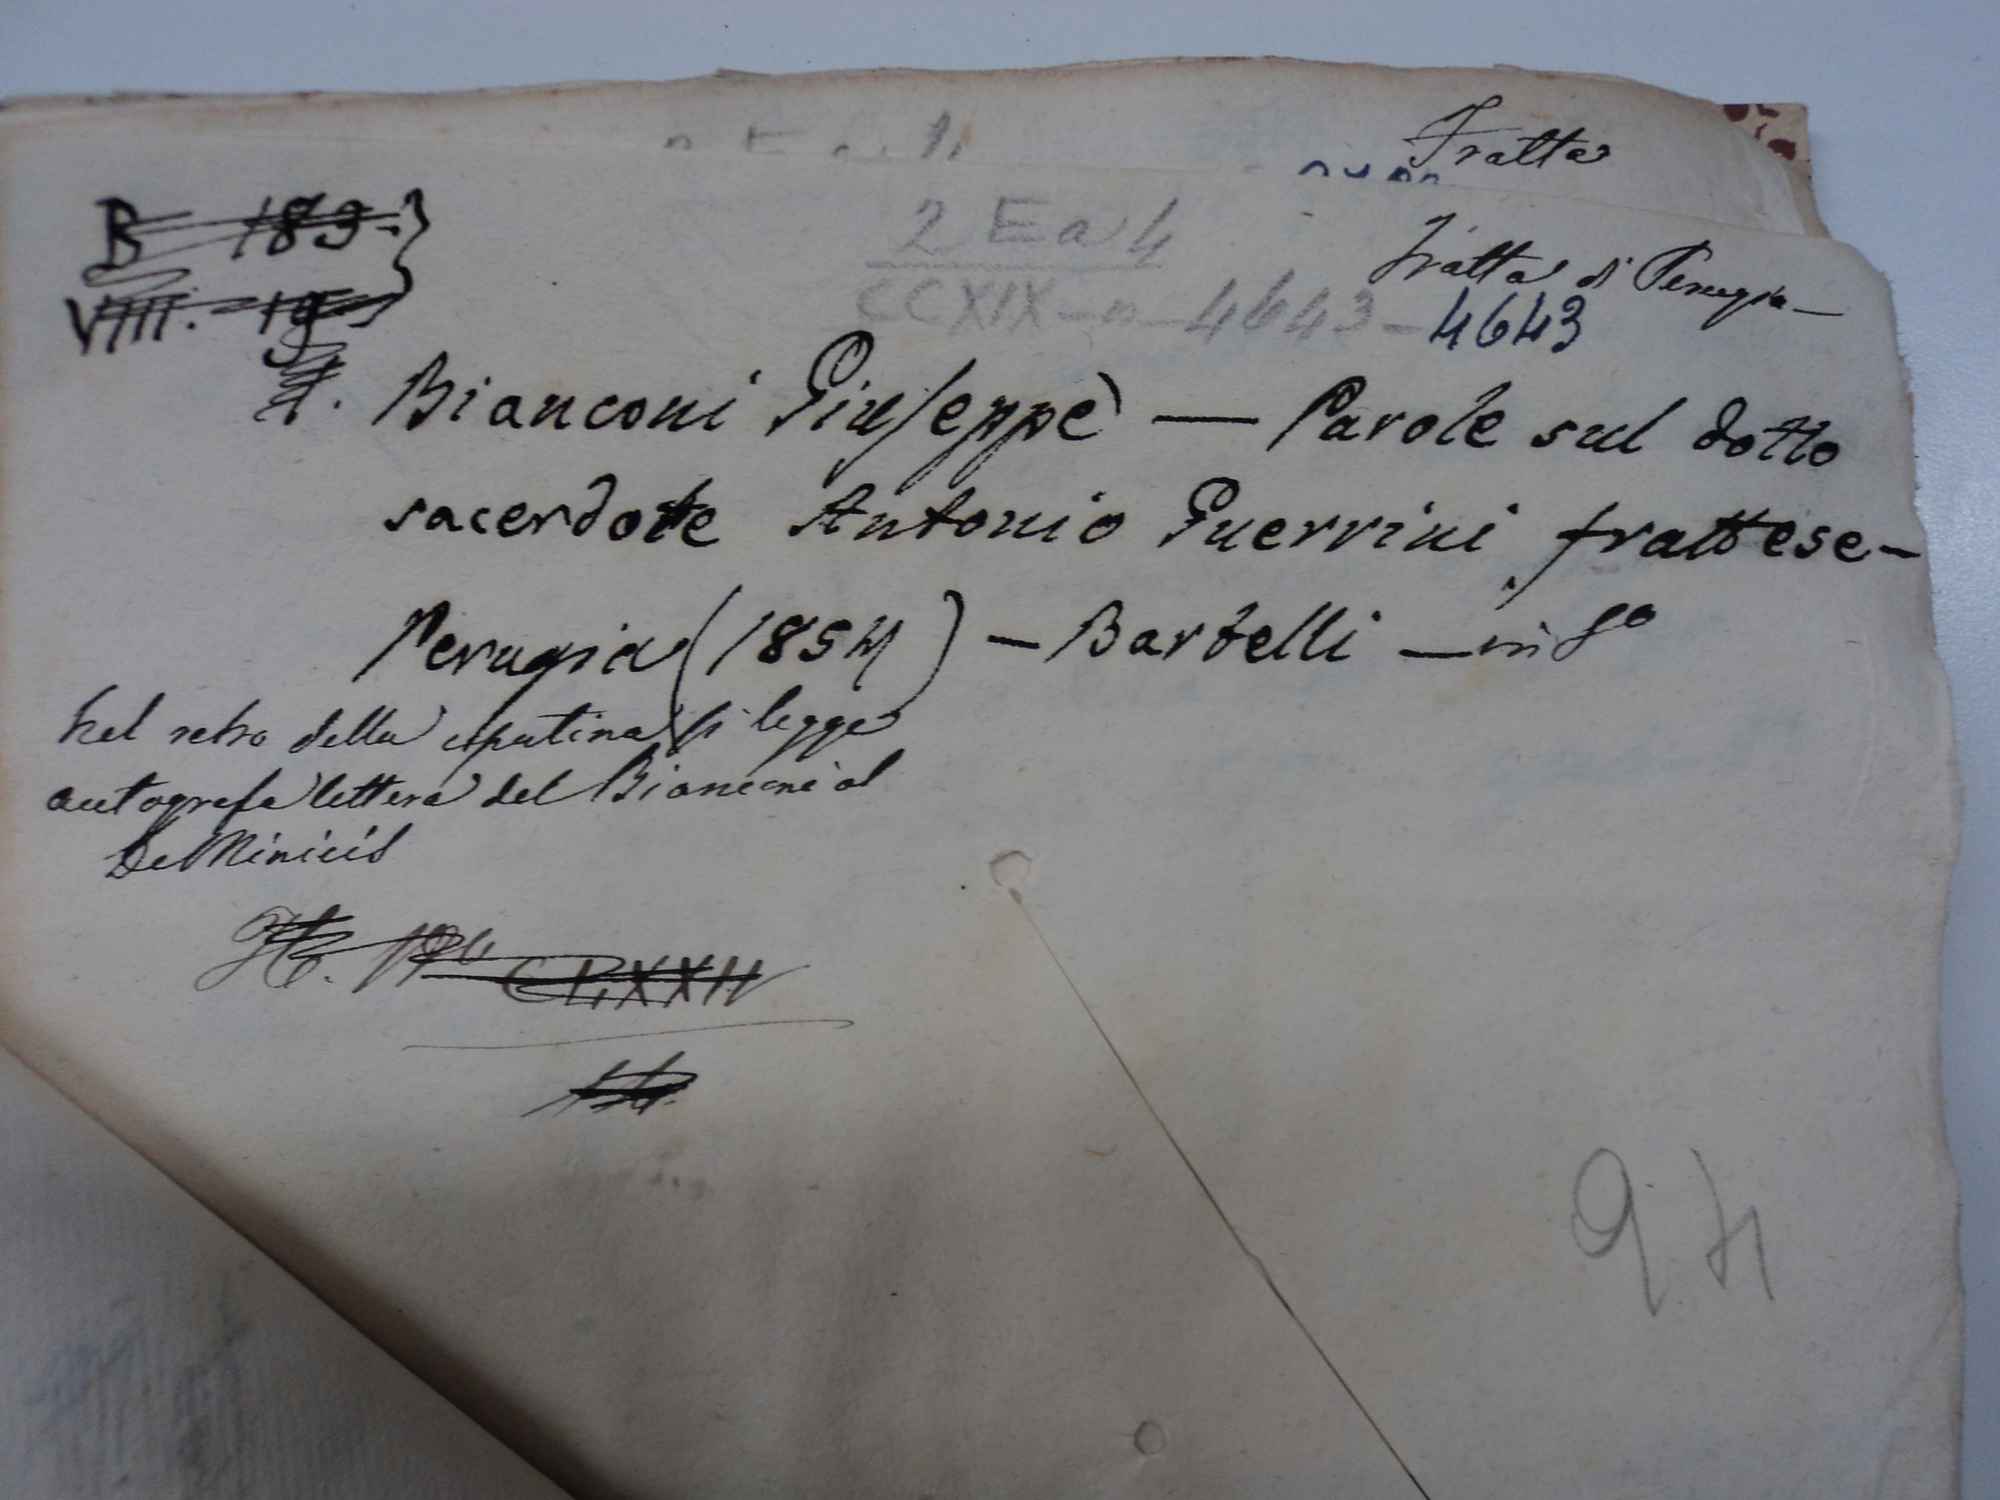 Fratta
Fratta di Perugia —
B 183.
VIIII. 19
2 Ea 4
CCXIX - n - 4643 - 4643
Bianconi Giuseppe — Parole sul dotto
sacerdote Antonio Guerrini frattese -
Perugia (1854) - Bartelli — in 8º
Nel retro della copertina si legge
autografa lettera del Bianconi al
De Minicis
CLXXII
94